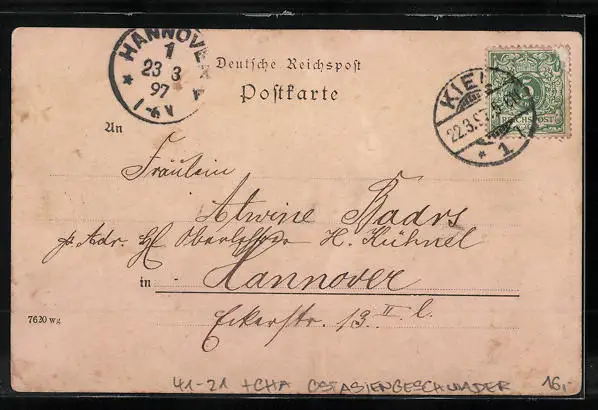 HANNOVER
1
23 3
97
Deutsche Reichspost
Postkarte
KIEL
22.3.97
* 1
5
REICHSPOST
An
Fräulein
Alwine Badrs
p. Adr. H. H. Kühnel
in Hannover
Eckerstr. 13 II l.
7620 wg
41-21 +CHA OSTASIENGESCHWADER 16,-